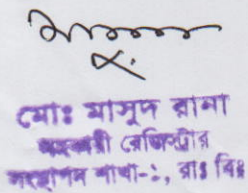 মোঃ মাসুদ রানা
সহকারী রেজিস্ট্রার
সংস্থাপন শাখা-১, রাঃ বিঃ